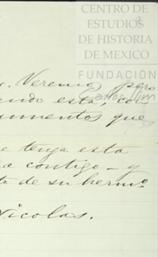 CENTRO DE
ESTUDIOS
DE HISTORIA
DE MEXICO
FUNDACIÓN
pero
endo esta con
umentos que
e tenga esta
a contigo _ y
ta de su herm.º
Nicolas.